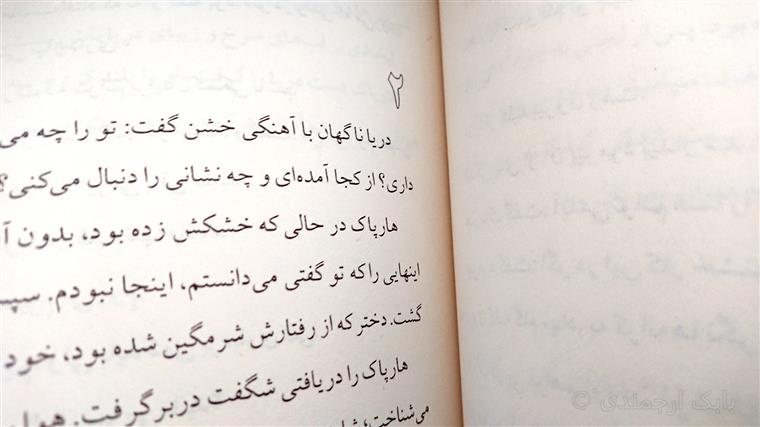 ۲
دریا ناگهان با آهنگی خشن گفت: تو را چه می
داری؟ از کجا آمده‌ای و چه نشانی را دنبال می‌کنی؟
هارپاک در حالی که خشکش زده بود، بدون آ
اینهایی را که تو گفتی می‌دانستم، اینجا نبودم. سپس
گشت. دختر که از رفتارش شرمگین شده بود، خود
هارپاک را دریافتی شگفت در بر گرفت.
می‌شناخت؛
© بابک ارجمندی